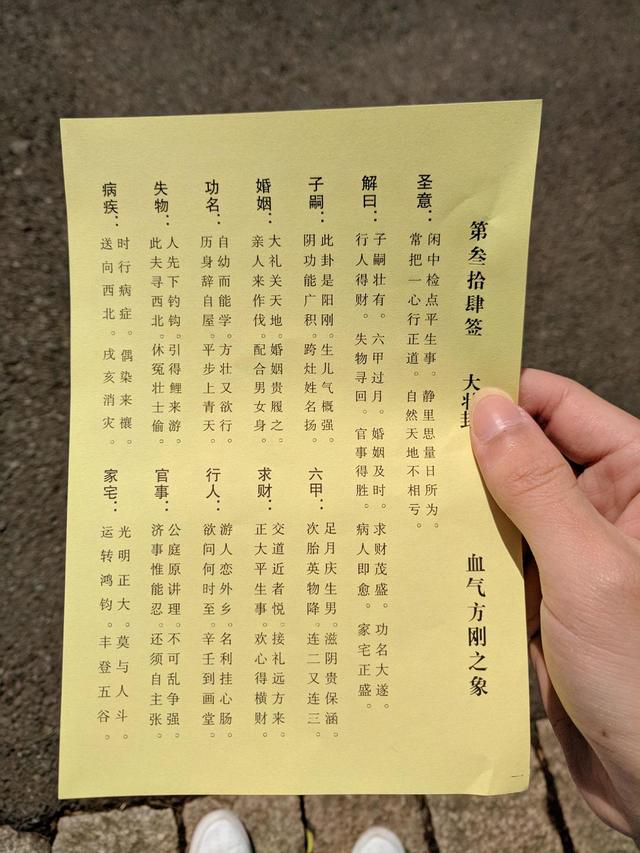 第叁拾肆签 大壮卦 血气方刚之象
圣意：
闲中检点平生事。静里思量日所为。
常把一心行正道。自然天地不相亏。
解曰：
子嗣壮有。六甲过月。婚姻及时。求财茂盛。功名大遂。
行人得财。失物寻回。官事得胜。病人即愈。家宅正盛。
子嗣：
此卦是阳刚。生儿气概强。
阴功能广积。跨灶姓名扬。
婚姻：
大礼关天地。婚姻贵履之。
亲人来作伐。配合男女身。
功名：
自幼而能学。方壮又欲行。
历身辞自屋。平步上青天。
失物：
人先下钓钩。引得鲤来游。
此夫寻西北。休冤壮士偷。
病疾：
时行病症。偶染来禳。
送向西北。戌亥消灾
六甲：
足月庆生男。滋阴贵保涵。
次胎英物降。连二又连三。
求财：
交道近者悦。接礼远方来。
正大平生事。欢心得横财。
行人：
游人恋外乡。名利挂心肠。
欲问何时至。辛壬到画堂。
官事：
公庭原讲理。不可乱争强。
济事惟能忍。还须自主张。
家宅：
光明正大。莫与人斗。
运转鸿钧。丰登五谷。